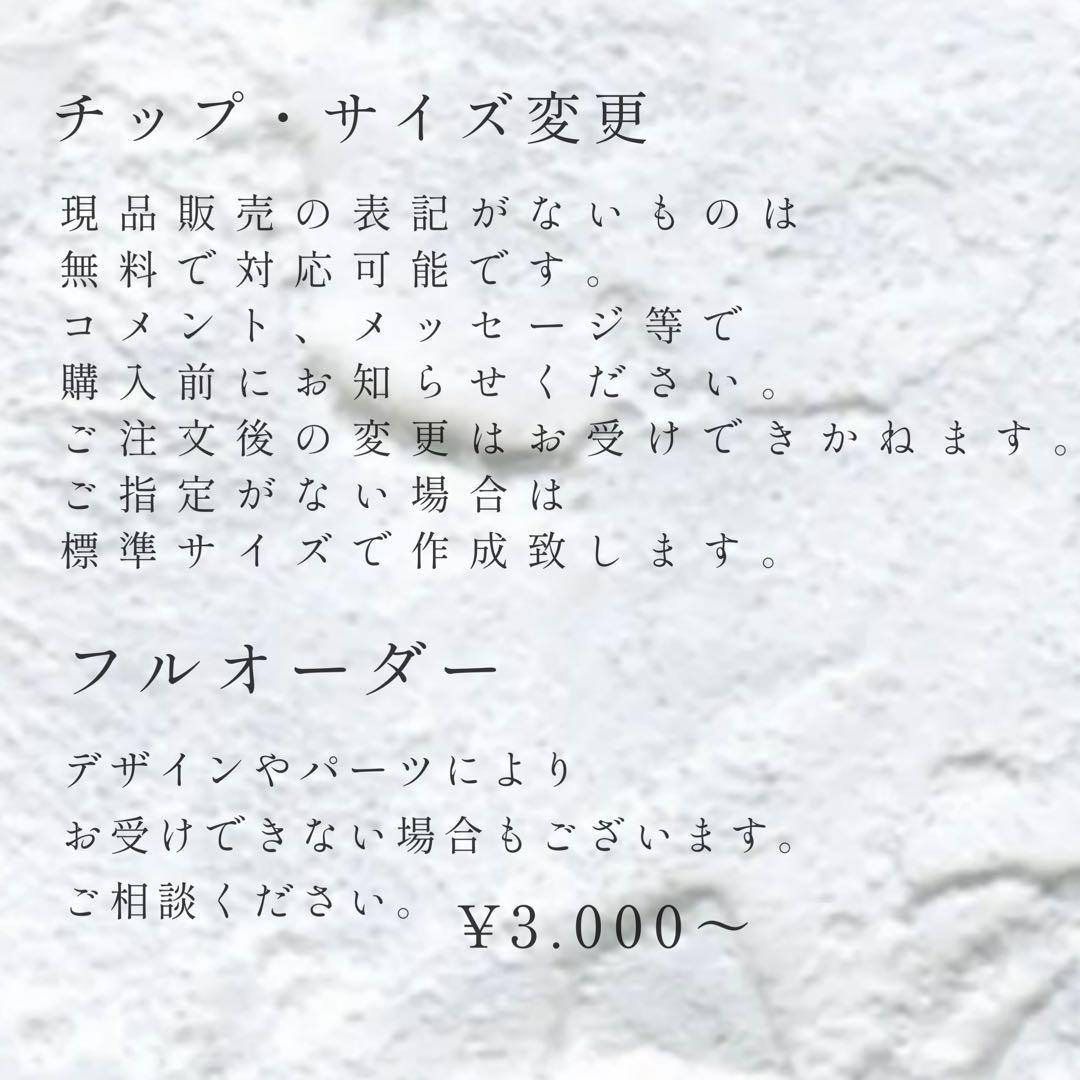 チップ・サイズ変更
現品販売の表記がないものは
無料で対応可能です。
コメント、メッセージ等で
購入前にお知らせください。
ご注文後の変更はお受けできかねます。
ご指定がない場合は
標準サイズで作成致します。
フルオーダー
デザインやパーツにより
お受けできない場合もございます。
ご相談ください。
¥3.000〜